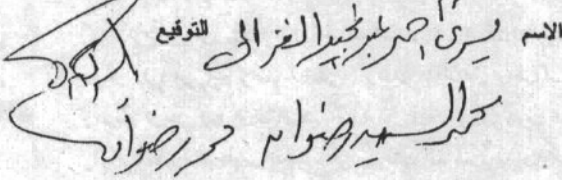 الاسم يسرى احمد عبد المجيد الغزالى التوقيع
محمد السيد رضوان محمد رضوان